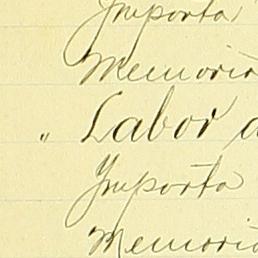 Importa
Memoria
" Labor a
Importa
Memoria